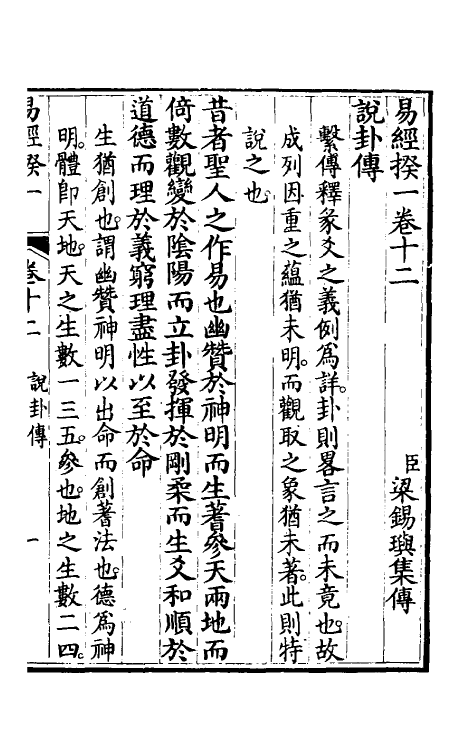 易經揆一卷十二
臣梁錫璵集傳
說卦傳
繫傳釋彖爻之義例爲詳。卦則畧言之而未竟也。故
成列因重之蘊猶未明。而觀取之象猶未著。此則特
說之也
昔者聖人之作易也幽贊於神明而生蓍參天兩地而
倚數觀變於陰陽而立卦發揮於剛柔而生爻和順於
道德而理於義窮理盡性以至於命
生猶創也。謂幽贊神明以出命而創蓍法也。德爲神
明。體卽天地。天之生數一三五。參也。地之生數二四。
易經揆一
卷十二
說卦傳
一